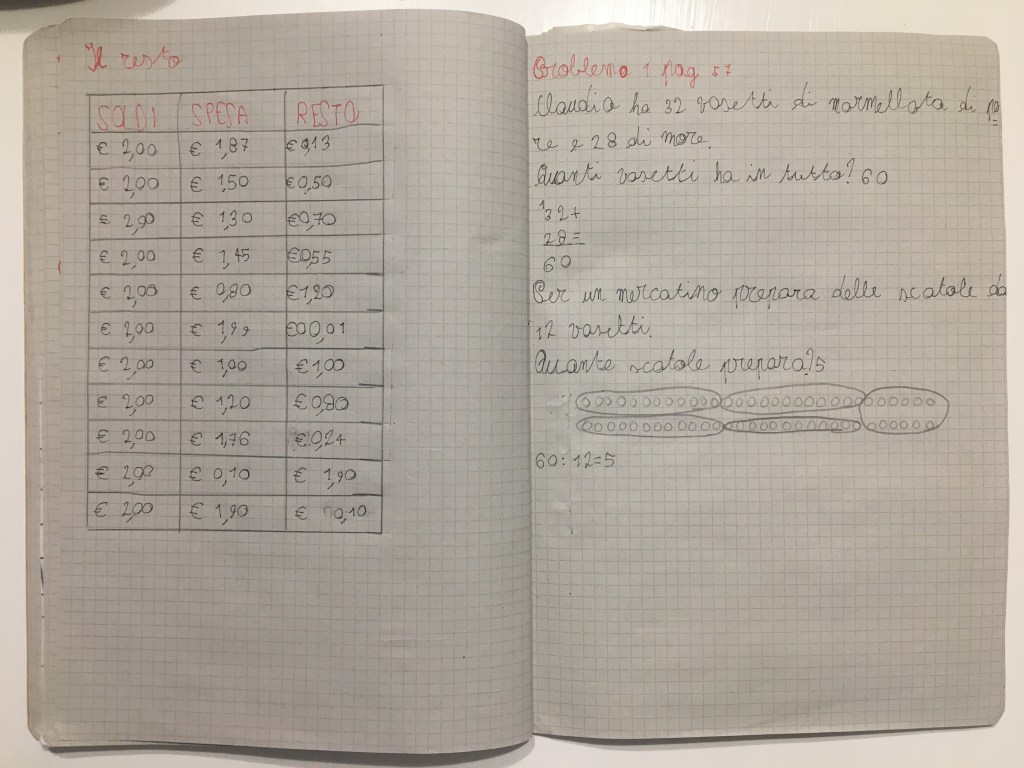 Il resto
SOLDI SPESA RESTO
€ 2,00 € 1,87 € 0,13
€ 2,00 € 1,50 € 0,50
€ 2,00 € 1,30 € 0,70
€ 2,00 € 1,45 € 0,55
€ 2,00 € 0,80 € 1,20
€ 2,00 € 1,99 € 0,01
€ 2,00 € 1,00 € 1,00
€ 2,00 € 1,20 € 0,80
€ 2,00 € 1,76 € 0,24
€ 2,00 € 0,10 € 1,90
€ 2,00 € 1,90 € 0,10
Problema 1 pag 57
Claudia ha 32 vasetti di marmellata di
re e 28 di more.
Quanti vasetti ha in tutto? 60
¹32+
28=
60
Per un mercatino prepara delle scatole da
12 vasetti.
Quante scatole prepara? 5
60:12=5